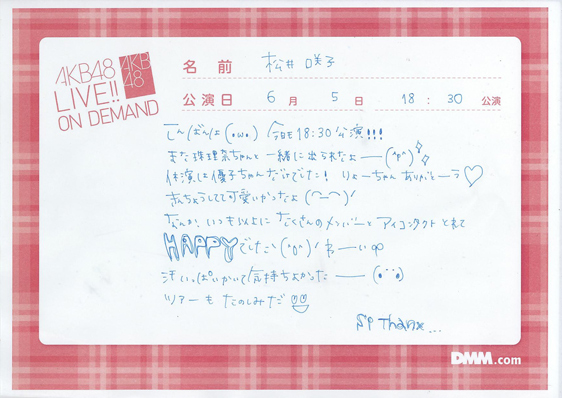 AKB48
LIVE!!
ON DEMAND
AKB
48
名前 松井 咲子
公演日 6月 5日 18:30 公演
こんばんは(・ω・) 18:30公演!!!
また珠理奈ちゃんと一緒に出られたよー(^o^)
休演は優子ちゃんだけでした! りょーちゃんありがとーう♡
きんちょうしてて可愛いかったよ(⌒ー⌒)!
なんか、いつも以上に たくさんのメンバーと アイコンタクト とれて
HAPPYでした
汗いっぱいかいて気持ちよかったー
ツアーも たのしみだ
SP Thanx...
DMM.com